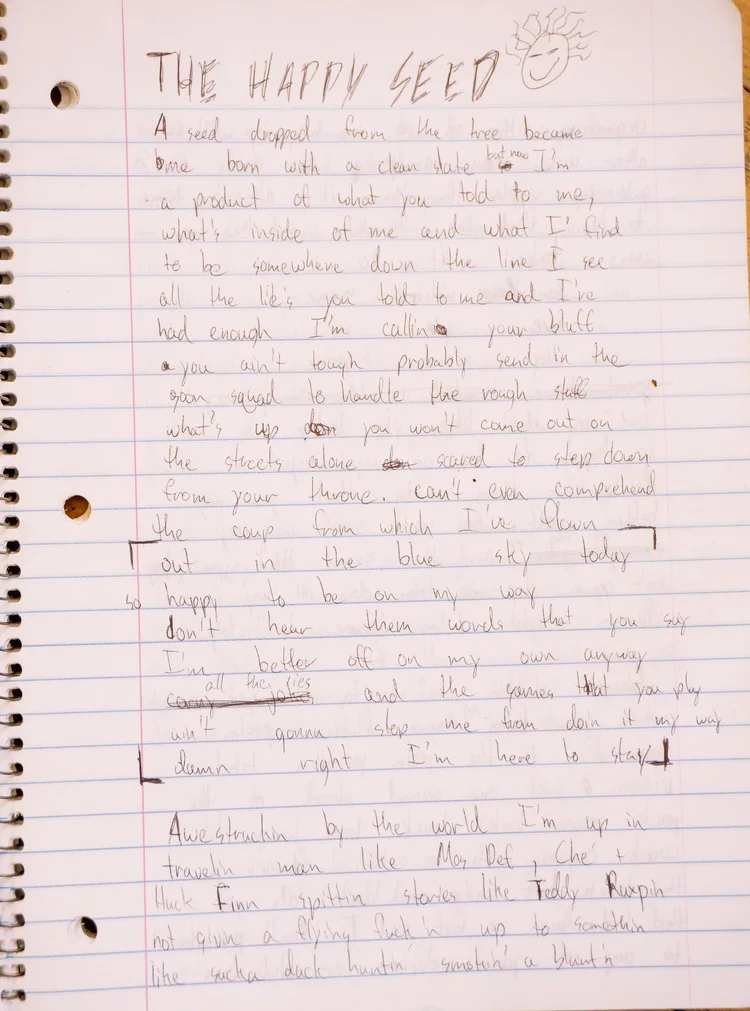 THE HAPPY SEED
A seed dropped from the tree became
me born with a clean slate but now I'm
a product of what you told to me,
what's inside of me and what I' find
to be somewhere down the line I see
all the lie's you told to me and I've
had enough I'm callin your bluff
you ain't tough probably send in the
goon squad to handle the rough stuff
what's up you won't come out on
the streets alone scared to step down
from your throne. can't even comprehend
the coup from which I've flown
out in the blue sky today
so happy to be on my way
don't hear them words that you say
I'm better off on my own anyway
all the lies and the games that you play
ain't gonna stop me from doin it my way
damn right I'm here to stay
Awestruckin by the world I'm up in
travelin man like Mos Def, Che' +
Huck Finn spittin stories like Teddy Ruxpin
not givin a flying fuck'n up to somethin
like sucka duck huntin' smokin' a blunt'n